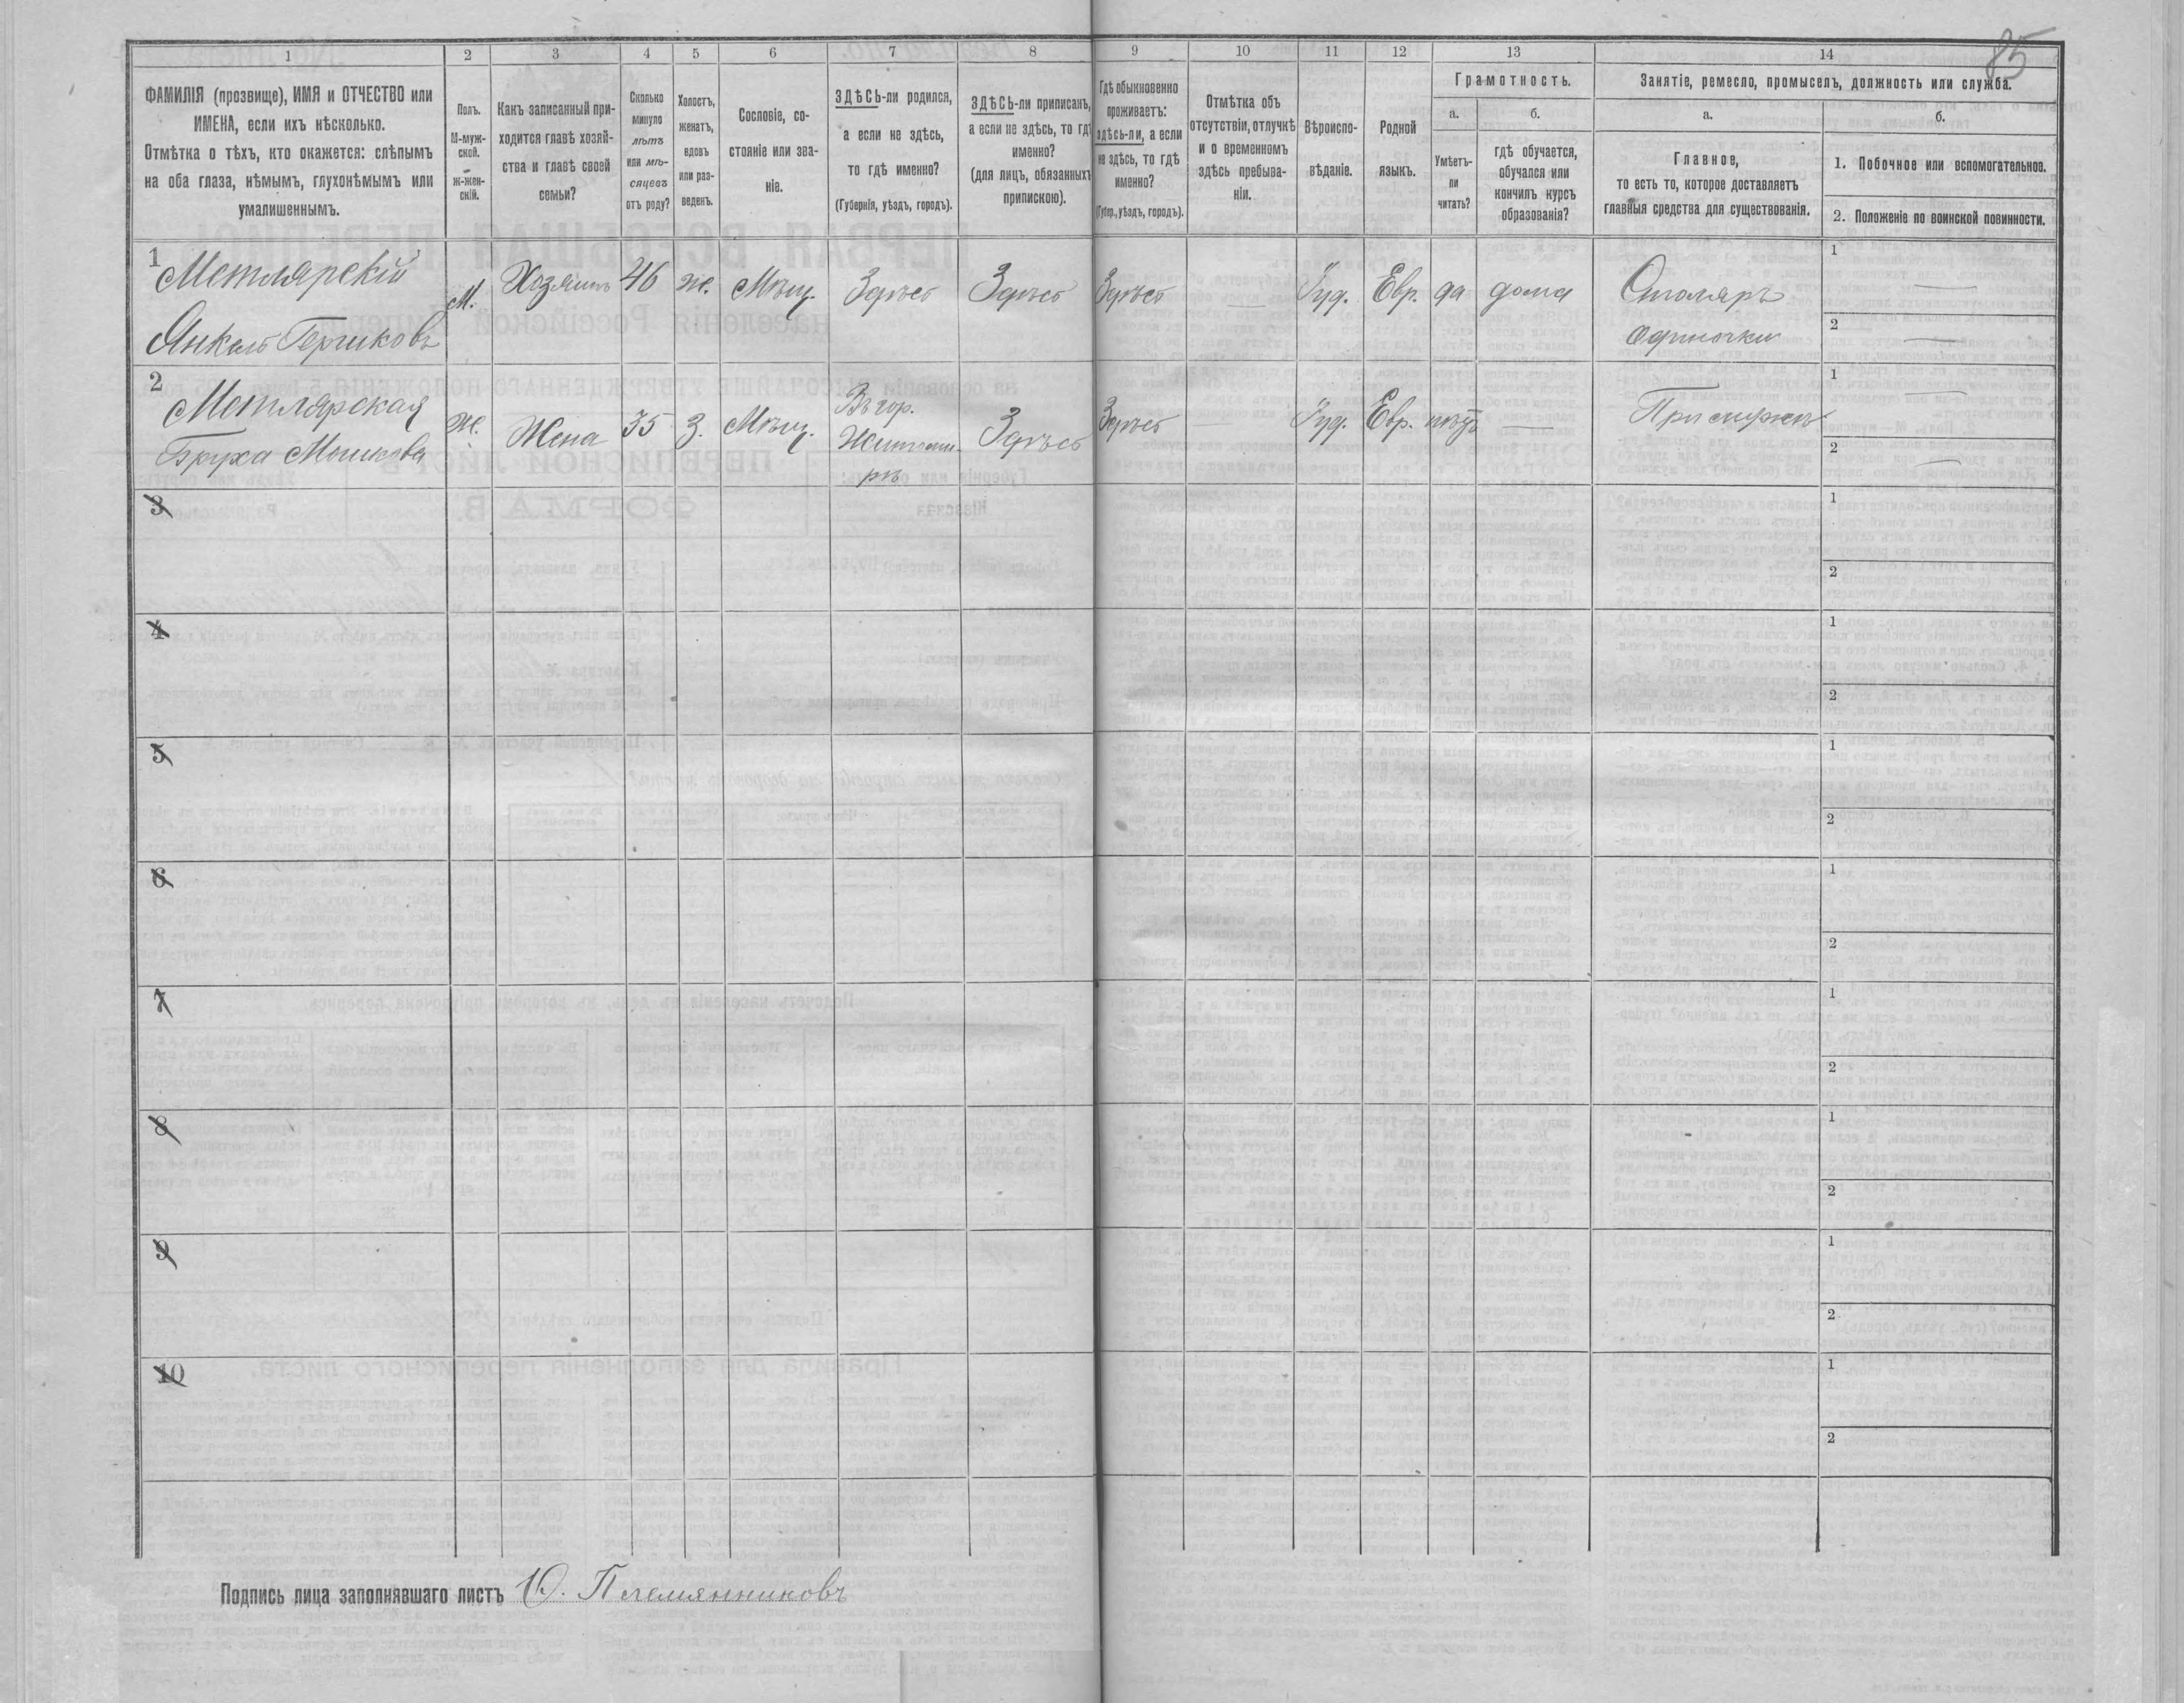 85
1 2 3 4 5 6 7 8 9 10 11 12 13 14
ФАМИЛІЯ (прозвище), ИМЯ и ОТЧЕСТВО или
ИМЕНА, если ихъ нѣсколько.
Отмѣтка о тѣхъ, кто окажется: слѣпымъ
на оба глаза, нѣмымъ, глухонѣмымъ или
умалишеннымъ.
Полъ.
М-муж-
ской.
ж-жен-
скій.
Какъ записанный при-
ходится главѣ хозяй-
ства и главѣ своей
семьи?
Сколько
минуло
лѣтъ
или мѣ-
сяцевъ
отъ роду?
Холостъ,
женатъ,
вдовъ
или раз-
веденъ.
Сословіе, со-
стояніе или зва-
ніе.
ЗДѢСЬ-ли родился,
а если не здѣсь,
то гдѣ именно?
(Губернія, уѣздъ, городъ).
ЗДѢСЬ-ли приписанъ,
а если не здѣсь, то гдѣ
именно?
(для лицъ, обязанныхъ
припискою).
Гдѣ обыкновенно
проживаетъ:
здѣсь-ли, а если
не здѣсь, то гдѣ
именно?
(Губер., уѣздъ, городъ).
Отмѣтка объ
отсутствіи, отлучкѣ
и о временномъ
здѣсь пребыва-
ніи.
Вѣроиспо-
вѣданіе.
Родной
языкъ.
Грамотность.
а.
Умѣетъ-
ли
читать?
б.
гдѣ обучается,
обучался или
кончилъ курсъ
образованія?
Занятіе, ремесло, промыселъ, должность или служба.
а.
Главное,
то есть то, которое доставляетъ
главныя средства для существованія.
б.
1. Побочное или вспомогательное.
2. Положеніе по воинской повинности.
1
Метлярскій
Янкель Гершковъ
М.
Хозяинъ
46
же.
Мѣщ.
Здѣсь
Здѣсь
Здѣсь
—
Іуд.
Евр.
да
дома
Столяръ
одиночка
1 —
2 —
2
Метлярская
Бруха Мошкова
Ж.
Жена
35
З.
Мѣщ.
Въ гор.
Житоми-
рѣ
Здѣсь
Здѣсь
—
Іуд.
Евр.
нѣтъ
—
При мужѣ
1 —
2 —
3
1
2
4
1
2
5
1
2
6
1
2
7
1
2
8
1
2
9
1
2
10
1
2
Подпись лица заполнявшаго листъ Ю. Племянниковъ